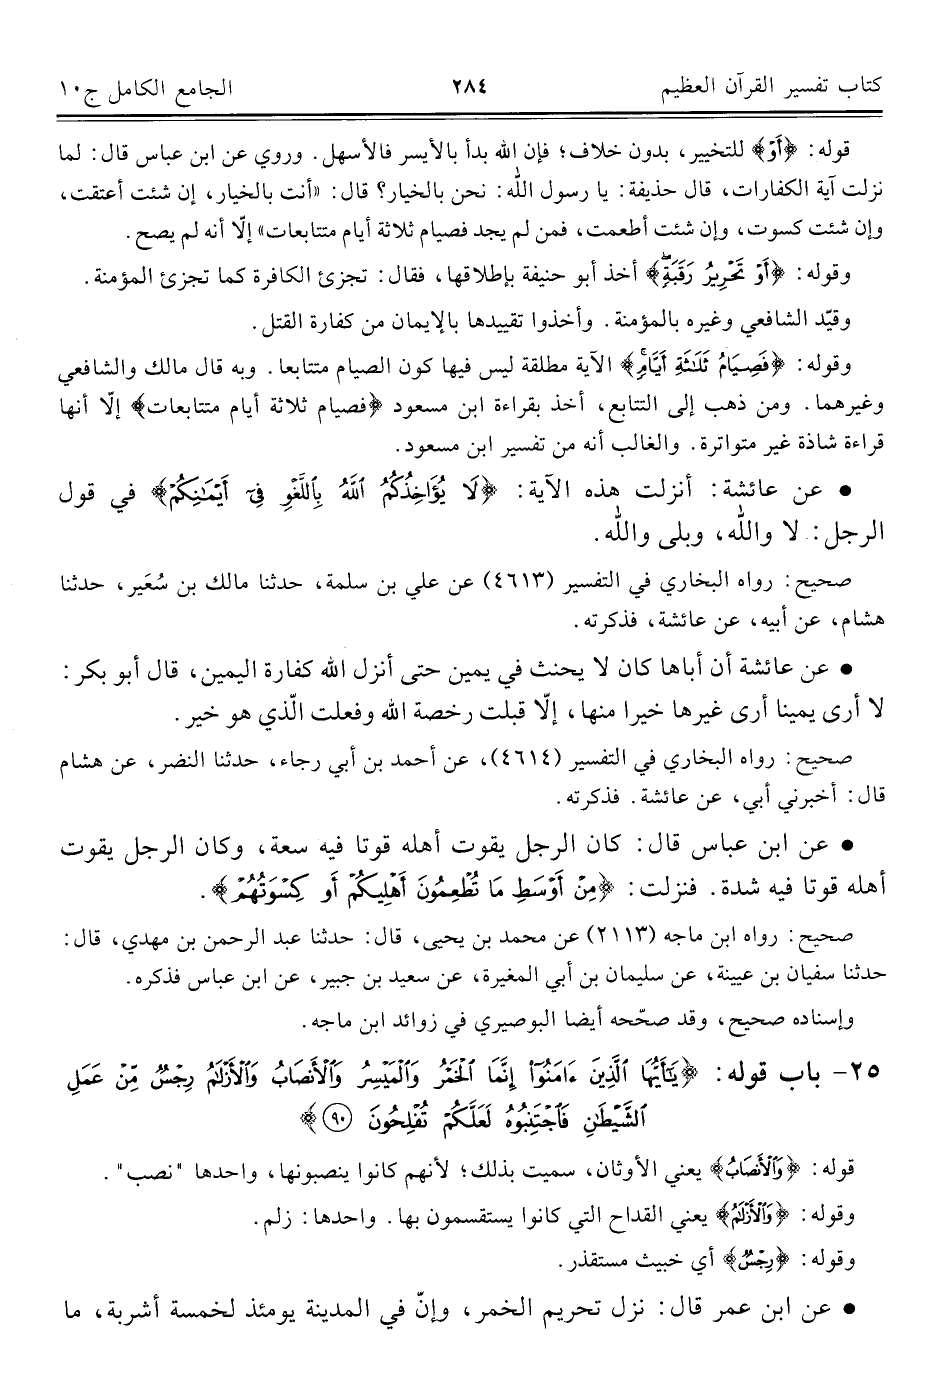 كتاب تفسير القرآن العظيم ٢٨٤ الجامع الكامل ج١٠
قوله: ﴿أَوْ﴾ للتخيير، بدون خلاف؛ فإن الله بدأ بالأيسر فالأسهل. وروي عن ابن عباس قال: لما
نزلت آية الكفارات، قال حذيفة: يا رسول الله: نحن بالخيار؟ قال: «أنت بالخيار، إن شئت أعتقت،
وإن شئت كسوت، وإن شئت أطعمت، فمن لم يجد فصيام ثلاثة أيام متتابعات» إلّا أنه لم يصح.
وقوله: ﴿أَوْ تَحْرِيرُ رَقَبَةٍۖ﴾ أخذ أبو حنيفة بإطلاقها، فقال: تجزئ الكافرة كما تجزئ المؤمنة.
وقيّد الشافعي وغيره بالمؤمنة. وأخذوا تقييدها بالإيمان من كفارة القتل.
وقوله: ﴿فَصِيَامُ ثَلَٰثَةِ أَيَّامٍۚ﴾ الآية مطلقة ليس فيها كون الصيام متتابعا. وبه قال مالك والشافعي
وغيرهما. ومن ذهب إلى التتابع، أخذ بقراءة ابن مسعود ﴿فصيام ثلاثة أيام متتابعات﴾ إلّا أنها
قراءة شاذة غير متواترة. والغالب أنه من تفسير ابن مسعود.
• عن عائشة: أنزلت هذه الآية: ﴿لَا يُؤَاخِذُكُمُ ٱللَّهُ بِٱللَّغْوِ فِىٓ أَيْمَٰنِكُمْ﴾ في قول
الرجل: لا والله، وبلى والله.
صحيح: رواه البخاري في التفسير (٤٦١٣) عن علي بن سلمة، حدثنا مالك بن سُعَير، حدثنا
هشام، عن أبيه، عن عائشة، فذكرته.
• عن عائشة أن أباها كان لا يحنث في يمين حتى أنزل الله كفارة اليمين، قال أبو بكر:
لا أرى يمينا أرى غيرها خيرا منها، إلّا قبلت رخصة الله وفعلت الّذي هو خير.
صحيح: رواه البخاري في التفسير (٤٦١٤)، عن أحمد بن أبي رجاء، حدثنا النضر، عن هشام
قال: أخبرني أبي، عن عائشة. فذكرته.
• عن ابن عباس قال: كان الرجل يقوت أهله قوتا فيه سعة، وكان الرجل يقوت
أهله قوتا فيه شدة. فنزلت: ﴿مِنْ أَوْسَطِ مَا تُطْعِمُونَ أَهْلِيكُمْ أَو كِسْوَتُهُمْ﴾.
صحيح: رواه ابن ماجه (٢١١٣) عن محمد بن يحيى، قال: حدثنا عبد الرحمن بن مهدي، قال:
حدثنا سفيان بن عيينة، عن سليمان بن أبي المغيرة، عن سعيد بن جبير، عن ابن عباس فذكره.
وإسناده صحيح، وقد صحّحه أيضا البوصيري في زوائد ابن ماجه.
٢٥- باب قوله: ﴿يَٰٓأَيُّهَا ٱلَّذِينَ ءَامَنُوٓا۟ إِنَّمَا ٱلْخَمْرُ وَٱلْمَيْسِرُ وَٱلْأَنصَابُ وَٱلْأَزْلَٰمُ رِجْسٌ مِّنْ عَمَلِ
ٱلشَّيْطَٰنِ فَٱجْتَنِبُوهُ لَعَلَّكُمْ تُفْلِحُونَ ٩٠﴾
قوله: ﴿وَٱلْأَنصَابُ﴾ يعني الأوثان، سميت بذلك؛ لأنهم كانوا ينصبونها، واحدها "نصب".
وقوله: ﴿وَٱلْأَزْلَٰمُ﴾ يعني القداح التي كانوا يستقسمون بها. واحدها: زلم.
وقوله: ﴿رِجْسٌ﴾ أي خبيث مستقذر.
• عن ابن عمر قال: نزل تحريم الخمر، وإنّ في المدينة يومئذ لخمسة أشربة، ما